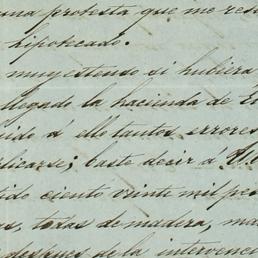 una protesta que me res
hipotecado.
muy estenso si hubiera
llegado la hacienda de En
uido á ello tantos errores
plicarse; baste decir á V.
tido ciento veinte mil pes
s, todas de madera, ma
despues de la intervenci